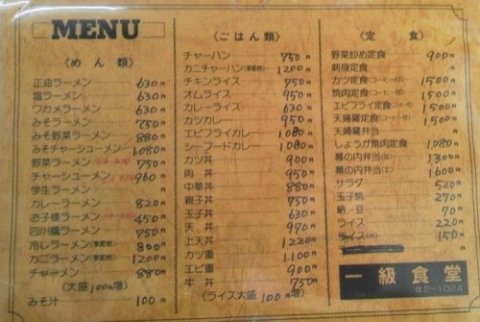 MENU
〈めん類〉
正油ラーメン 630円
塩ラーメン 630〃
ワカメラーメン 630〃
みそラーメン 750〃
みそ野菜ラーメン 880〃
みそチャーシューメン 1,080〃
野菜ラーメン 750〃
チャーシューメン 960〃
学生ラーメン 〃
カレーラーメン 820〃
お子様ラーメン 450〃
四川風ラーメン 750〃
冷しラーメン(季節物) 800〃
カニラーメン(季節物) 1200〃
チャーメン 880〃
(大盛 100円増)
みそ汁 100円
〈ごはん類〉
チャーハン 750円
カニチャーハン(季節物) 1200〃
チキンライス 750〃
オムライス 950〃
カレーライス 630〃
カツカレー 950〃
エビフライカレー 1080〃
シーフードカレー 1,080〃
カツ丼 900〃
肉丼 950〃
中華丼 880〃
親子丼 750〃
玉子丼 630〃
天丼 990〃
上天丼 1220〃
カツ重 1,100〃
エビ重 900〃
牛丼 750〃
(ライス大盛 100円増)
〈定食〉
野菜炒め定食 900円
刺身定食 〃
カツ定食(コーヒー付) 1,500〃
焼肉定食(コーヒー付) 1500〃
エビフライ定食(コーヒー付) 1500〃
天婦羅定食(コーヒー付) 1500〃
天婦羅弁当 〃
しょうが焼肉定食 1,080〃
幕の内弁当(並) 1300〃
幕の内弁当(上) 1600〃
サラダ 520〃
玉子焼 270〃
納豆 70〃
ライス 220〃
ライス(小) 150〃
一級食堂
☎2-1024